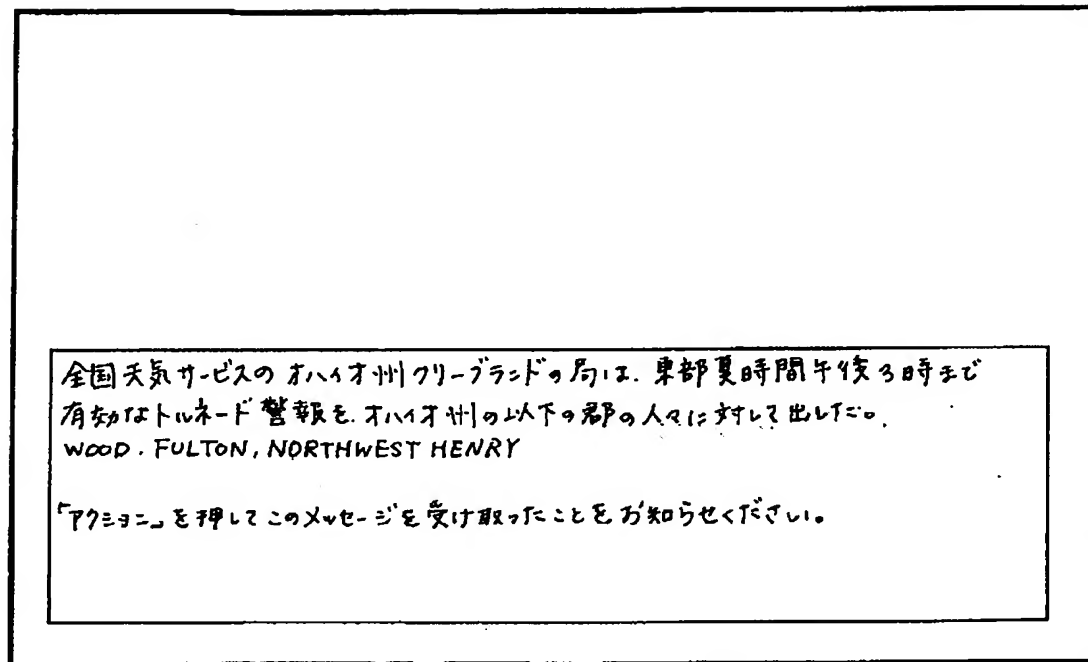 全国天気サービスの オハイオ州クリーブランドの局は、東部夏時間午後3時まで
有効なトルネード警報を、オハイオ州の以下の郡の人々に対して出した。
WOOD. FULTON, NORTHWEST HENRY
「アクション」を押してこのメッセージを受け取ったことをお知らせください。